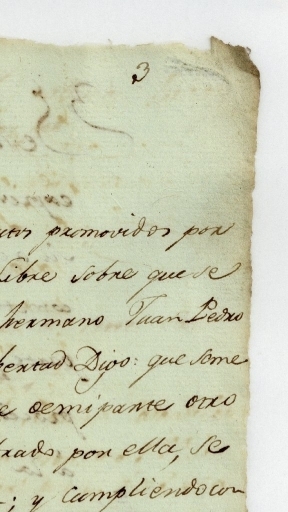 3
promovidos por
libre sobre que se
hermano Juan Pedro
bertad Digo: que seme
e demipante otro
trado por ella, se
; y cumpliendo con